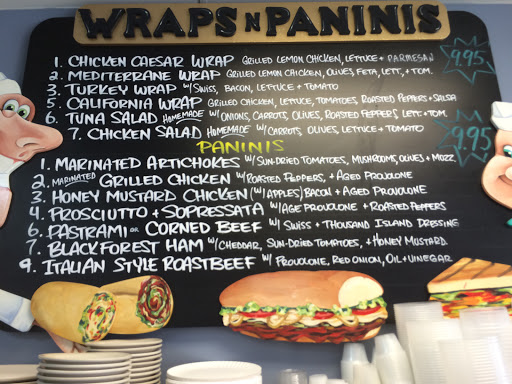 WRAPS N PANINIS
1. CHICKEN CAESAR WRAP GRILLED LEMON CHICKEN, LETTUCE + PARMESAN
2. MEDITERRANE WRAP GRILLED LEMON CHICKEN, OLIVES, FETA, LETT, + TOM.
9.95
3. TURKEY WRAP W/ SWISS, BACON, LETTUCE + TOMATO
5. CALIFORNIA WRAP GRILLED CHICKEN, LETTUCE, TOMATOES, ROASTED PEPPERS + SALSA
6. TUNA SALAD HOMEMADE W/ ONIONS, CARROTS, OLIVES, ROASTED PEPPERS, LETT + TOM.
7. CHICKEN SALAD HOMEMADE W/ CARROTS, OLIVES, LETTUCE + TOMATO
9.95
PANINIS
1. MARINATED ARTICHOKES W/ SUN-DRIED TOMATOES, MUSHROOMS, OLIVES + MOZZ.
2. MARINATED GRILLED CHICKEN W/ ROASTED PEPPERS, + AGED PROVOLONE
3. HONEY MUSTARD CHICKEN (W/ APPLES) BACON + AGED PROVOLONE
4. PROSCIUTTO + SOPRESSATA W/ AGE PROVOLONE + ROASTED PEPPERS
6. PASTRAMI OR CORNED BEEF W/ SWISS + THOUSAND ISLAND DRESSING
7. BLACKFOREST HAM W/ CHEDDAR, SUN-DRIED TOMATOES, + HONEY MUSTARD
9. ITALIAN STYLE ROASTBEEF W/ PROVOLONE, RED ONION, OIL + VINEGAR